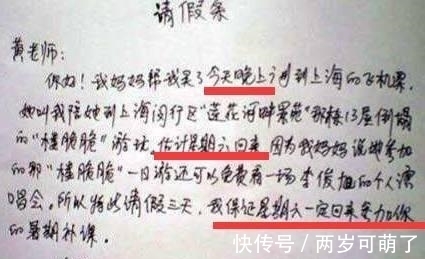 请假条
黄老师：
你好！我妈妈帮我买了今天晚上到上海的飞机票，
她叫我陪她到上海闵行区“莲花河畔景苑”那栋13层倒塌
的“楼脆脆”游玩，估计星期六回来，因为我妈妈说她参加
的那“楼脆脆”一日游还可以免费看一场李俊旭的个人演
唱会。所以特此请假三天，我保证星期六一定回来参加你
的暑期补课。
快传号/两岁可萌了